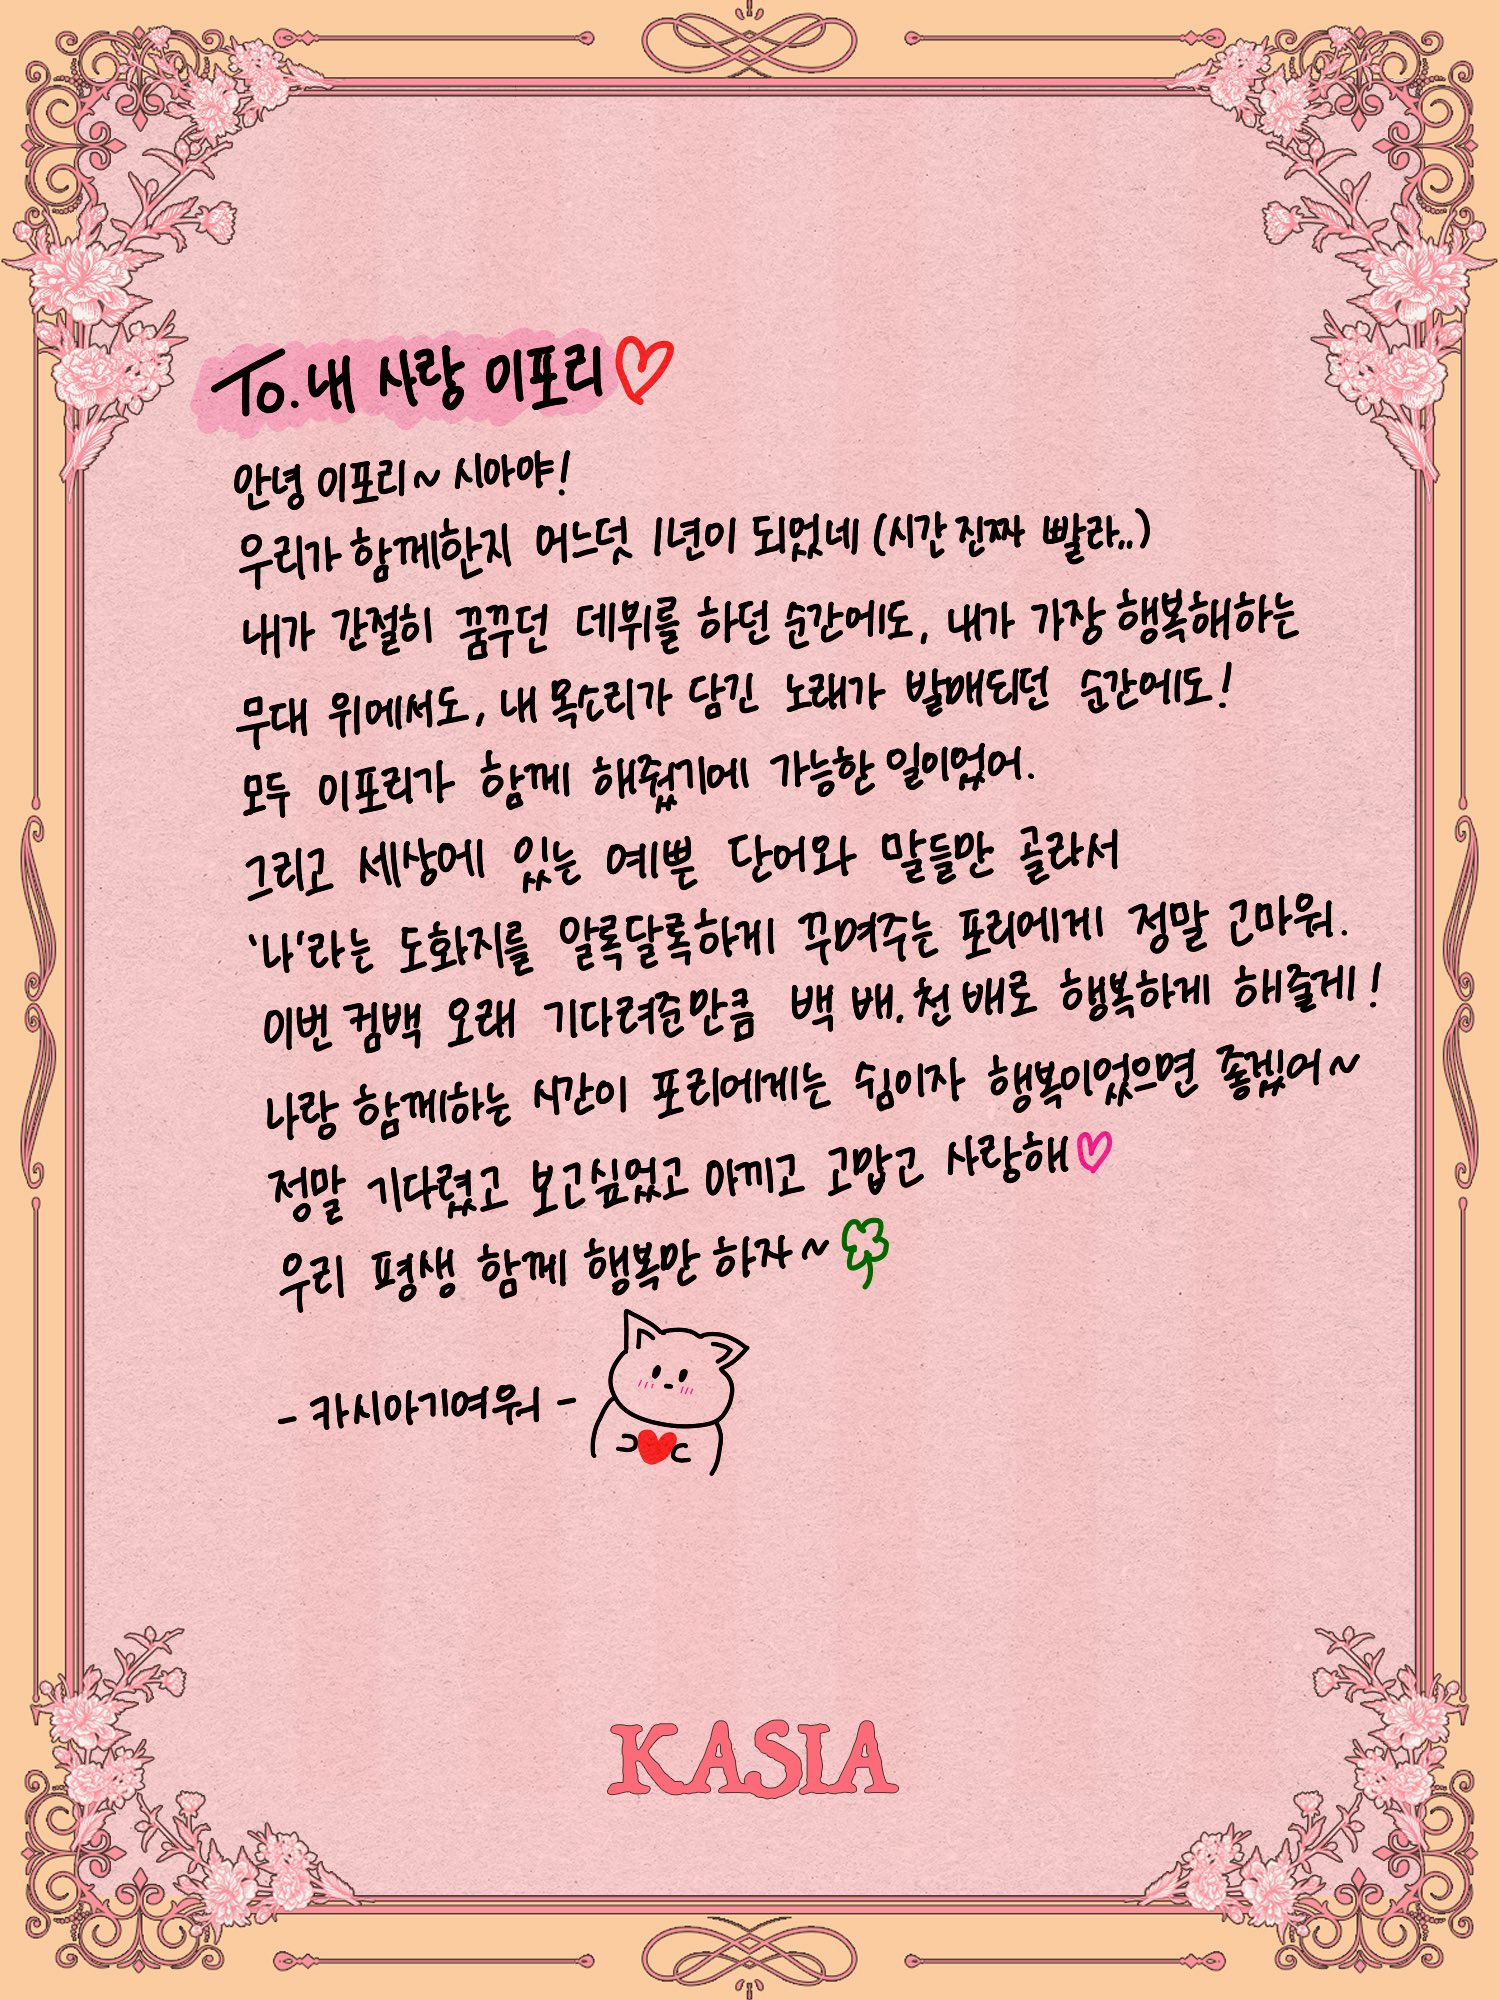 To. 내 사랑 이포리♡
안녕 이포리~ 시아야!
우리가 함께한지 어느덧 1년이 되었네 (시간 진짜 빨라..)
내가 간절히 꿈꾸던 데뷔를 하던 순간에도, 내가 가장 행복해하는
무대 위에서도, 내 목소리가 담긴 노래가 발매되던 순간에도!
모두 이포리가 함께 해줬기에 가능한 일이었어.
그리고 세상에 있는 예쁜 단어와 말들만 골라서
'나'라는 도화지를 알록달록하게 꾸며주는 포리에게 정말 고마워.
이번 컴백 오래 기다려준만큼 백 배. 천 배로 행복하게 해줄게!
나랑 함께하는 시간이 포리에게는 쉼이자 행복이었으면 좋겠어~
정말 기다렸고 보고싶었고 아끼고 고맙고 사랑해♡
우리 평생 함께 행복만 하자~
- 카시아기여워 -
KASIA